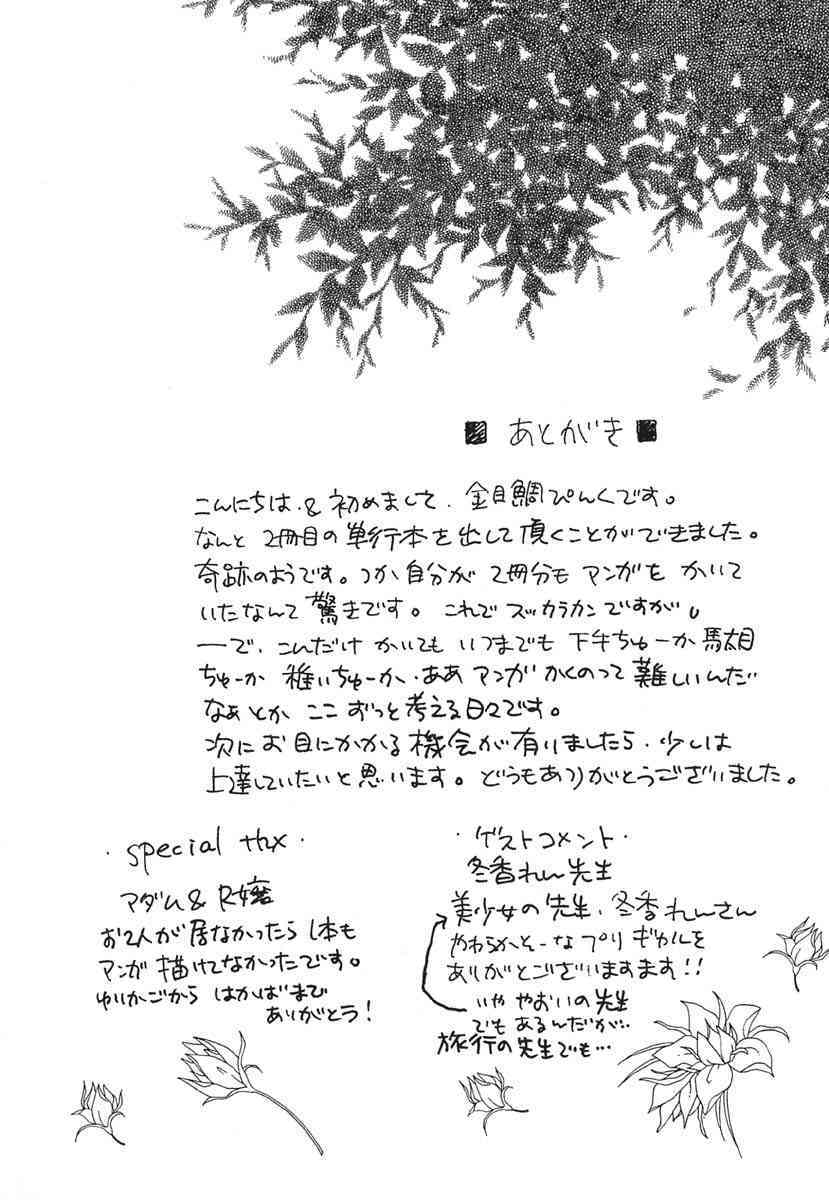 ■ あとがき ■
こんにちは & 初めまして、金目鯛ぴんくです。
なんと 2冊目の単行本を出して頂くことができました。
奇跡のようです。つか自分が 2冊分も マンガを かいて
いたなんて 驚きです。これで スッカラカンですが。
ーで、こんだけ かいても いつまでも 下手ちゅーか 駄目
ちゅーか 稚いちゅーか、ああ マンガ かくのって 難しいんだ
なぁとか ここ ずっと 考える日々です。
次に お目にかかる 機会が有りましたら、少しは
上達していたいと思います。どうもありがとうございました。
・special thx・
マダム & R嬢
お2人が居なかったら 1本も
マンガ 描けてなかったです。
ゆりかごから はかばまで
ありがとう!
・ゲストコメント・
冬香れん先生
美少女の先生、冬香れんさん
やわらかそーな プリ ギャルを
ありがとございますます!!
いや やおいの先生
でも あるんだが…
旅行の先生でも…